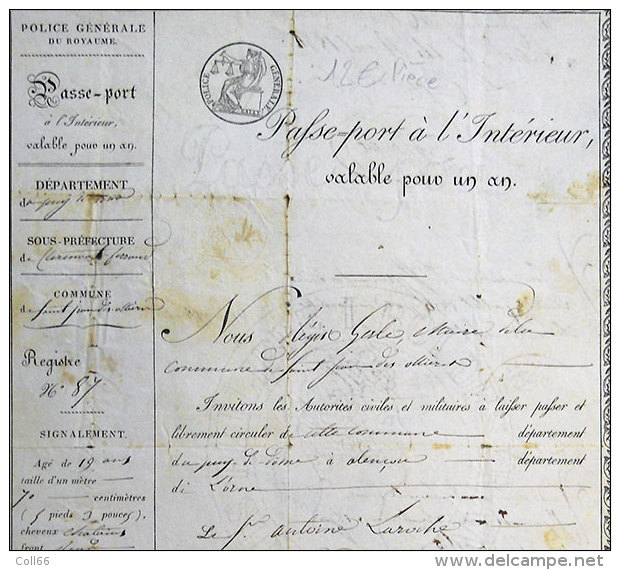 POLICE GÉNÉRALE
DU ROYAUME.
Passe-port
à l'Intérieur,
valable pour un an.
DÉPARTEMENT
du puy de dome
SOUS-PRÉFECTURE
de Clermont ferrand
COMMUNE
de Saint jean des
Registre
N.º 87
SIGNALEMENT.
Agé de 19 ans
taille d'un mètre
70 centimètres
(5 pieds 3 pouces)
cheveux chatains
front
POLICE GÉNÉRALE
12€ Pièce
Passe-port à l'Intérieur,
valable pour un an.
Nous Régis Maire de la
commune de Saint jean des
Invitons les Autorités civiles et militaires à laisser passer et
librement circuler de cette commune département
du puy de dome à alençon département
de L'orne
Le S.r antoine Laroche
Coll66
www.delcampe.net